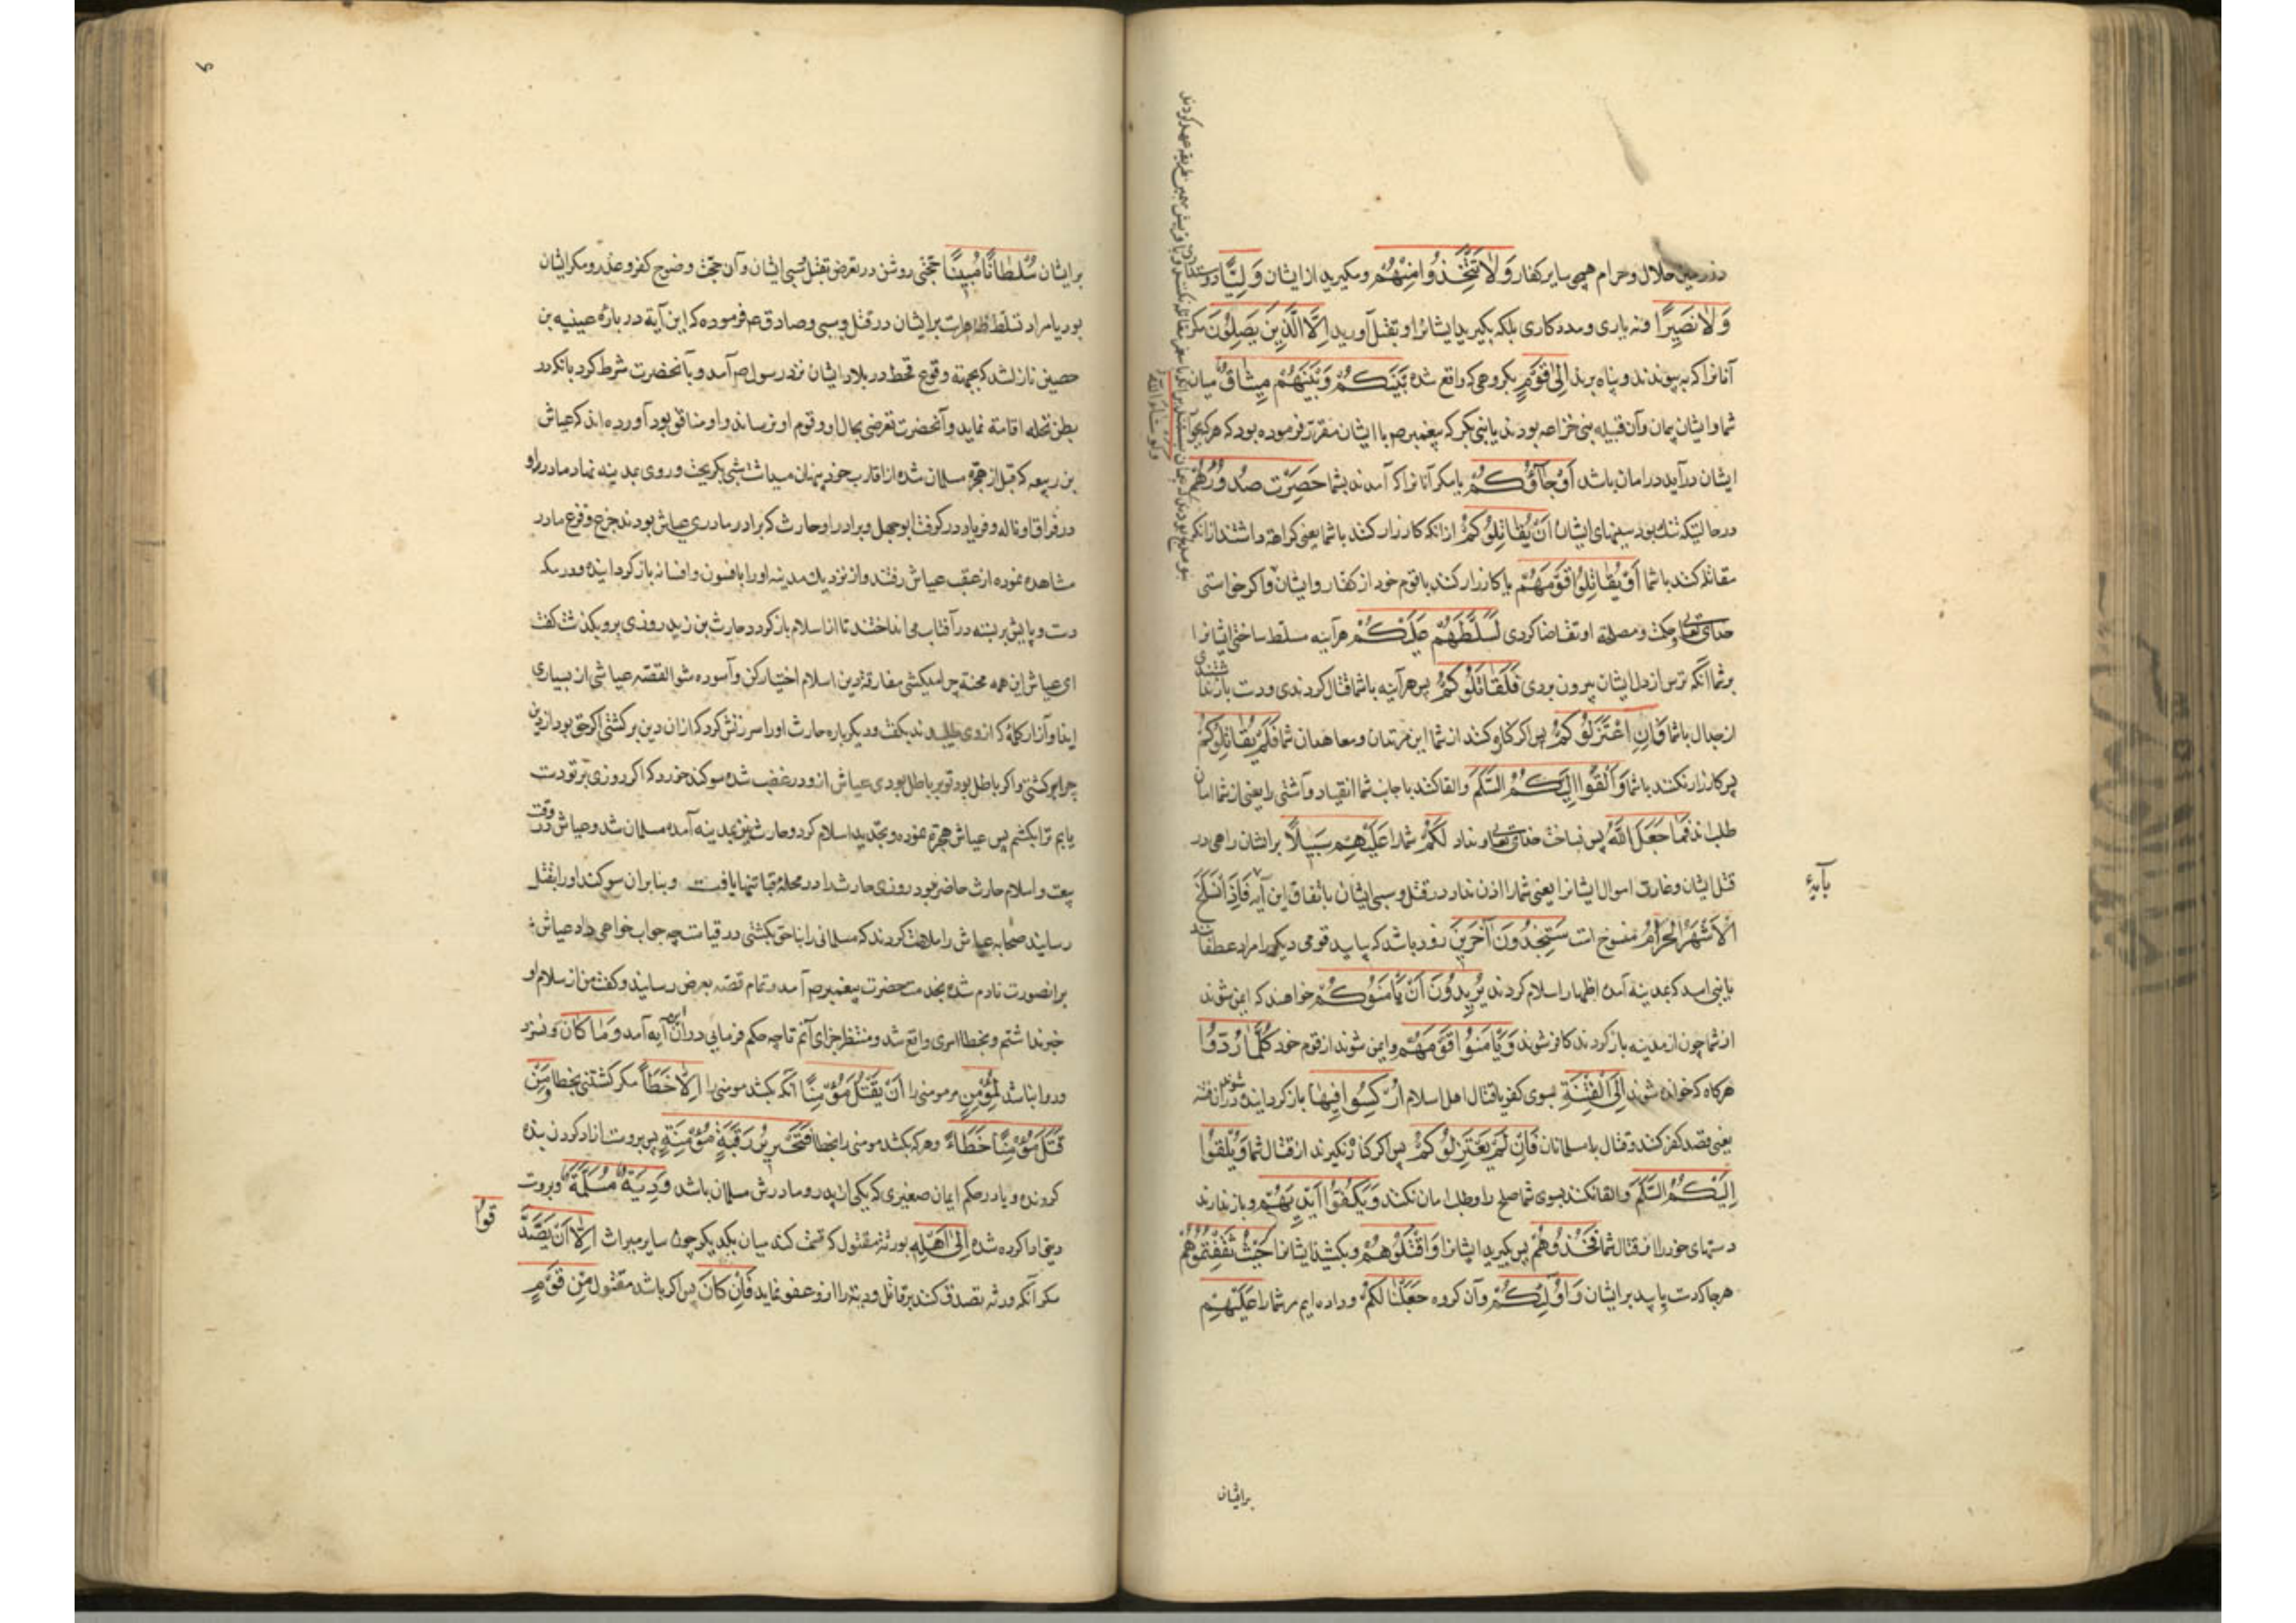 در زمین حلال و حرام همچو سایر کفار وَلَا تَتَّخِذُوا مِنْهُمْ و مگیرید از ایشان وَلِیًّا دوست
وَلَا نَصِیرًا و نه یاری و مددکاری بلکه بگیرید ایشانرا و بقتل آورید اِلَّا الَّذِینَ یَصِلُونَ مگر
آنانرا که بپیوندند و پناه برند اِلٰی قَوْمٍ بگروهی که واقع شده بَیْنَکُمْ وَبَیْنَهُمْ مِیثَاقٌ میان
شما و ایشان پیمان و آن قبیله بنی خزاعه بودند یا بنی بکر که پیغمبر ص با ایشان مقرر فرموده بود که هرکه بجوار
ایشان درآید در امان باشد اَوْ جَآؤُکُمْ یا مگر آنانرا که آمدند بشما حَصِرَتْ صُدُورُهُمْ
در حالتیکه تنک بود سینهای ایشان اَنْ یُقَاتِلُوکُمْ از انکه کارزار کنند با شما یعنی کراهة داشتند از انکه
مقاتله کنند با شما اَوْ یُقَاتِلُوا قَوْمَهُمْ یا کارزار کنند با قوم خود از کفار و ایشان و اگر خواستی
خدای تعالی و حکمت و مصلحة او تقاضا کردی لَسَلَّطَهُمْ عَلَیْکُمْ هرآینه مسلط ساختی ایشانرا
بر شما آنکه ترس از دل ایشان بیرون بردی فَلَقَاتَلُوکُمْ پس هرآینه با شما قتال کردندی و دست باز نداشتندی
از جدال با شما فَاِنِ اعْتَزَلُوکُمْ پس اگر کناره کنند از شما این مرتدان و معاهدان شما فَلَمْ یُقَاتِلُوکُمْ
پس کارزار نکنند با شما وَاَلْقَوْا اِلَیْکُمُ السَّلَمَ و القا کنند با جانب شما انقیاد و آشتی را یعنی از شما امان
طلبند فَمَا جَعَلَ اللّٰهُ پس نساخت خدای تعالی و نداد لَکُمْ شما را عَلَیْهِمْ سَبِیلًا بر ایشان راهی در
قتل ایشان و غارت اموال ایشانرا یعنی شما را اذن نداد در قتل و سبی ایشان باتفاق این آیه فَاِذَا انْسَلَخَ
بآیهٔ
الْاَشْهُرُ الْحُرُمُ منسوخ است سَتَجِدُونَ آخَرِینَ زود باشد که بیابید قومی دیگر را مراد غطفانند
یا بنی اسد که بمدینه آمده اظهار اسلام کردند یُرِیدُونَ اَنْ یَأْمَنُوکُمْ خواهند که ایمن شوند
از شما چون از مدینه باز گردند کافر شوند وَیَأْمَنُوا قَوْمَهُمْ و ایمن شوند از قوم خود کُلَّمَا رُدُّوا
هرگاه که خوانده شوند اِلَی الْفِتْنَةِ بسوی کفر یا قتال اهل اسلام اُرْکِسُوا فِیهَا باز گردانیده شوند در ان فتنه
یعنی قصد کفر کنند و قتال با مسلمانان فَاِنْ لَمْ یَعْتَزِلُوکُمْ پس اگر کناره نگیرند از قتال شما وَیُلْقُوا
اِلَیْکُمُ السَّلَمَ و القا نکنند بسوی شما صلح را و طلب امان نکنند وَیَکُفُّوا اَیْدِیَهُمْ و باز ندارند
دستهای خود را از قتال شما فَخُذُوهُمْ پس بگیرید ایشانرا وَاقْتُلُوهُمْ و بکشید ایشانرا حَیْثُ ثَقِفْتُمُوهُمْ
هرجا که دست یابید بر ایشان وَاُولٰئِکُمْ و آن گروه جَعَلْنَا لَکُمْ و داده ایم مر شما را عَلَیْهِمْ
بر ایشان
وَلَوْ شَاءَ اللّٰهُ
بر ایشان سُلْطَانًا مُبِینًا حجتی روشن در تعرض بقتل و سبی ایشان و آن حجت وضوح کفر و غدر و مکر ایشان
بود یا مراد تسلط ظاهر است بر ایشان در قتل و سبی و صادق ع فرموده که این آیة در بارهٔ عیینه بن
حصین نازل شد که بجهة وقوع قحط در بلاد ایشان نزد رسول ص آمد و با آنحضرت شرط کرد بانکه در
بطن نخله اقامة نماید و آنحضرت تعرضی بحال او و قوم او نرساند و او منافق بود آورده اند که عیاش
بن ربیعه که قبل از هجرة مسلمان شده از اقارب خود پنهان میداشت شبی بگریخت و روی بمدینه نهاد مادر او
در فراق او ناله و فریاد در گرفت ابوجهل و برادر او حارث که برادر مادری عیاش بودند جزع و فزع مادر
مشاهده نموده از عقب عیاش رفتند و از نزدیک مدینه او را بافسون و افسانه باز گردانیده و در مکه
دست و پایش بر بسته در آفتاب می انداختند تا از اسلام باز گردد حارث بن زید روزی برو بگذشت گفت
ای عیاش این همه محنة چرا میکشی مفارقة دین اسلام اختیار کن و آسوده شو القصّه عیاش از بسیاری
ایذا و آزار کلمهٔ که از وی طلبیدند بگفت و دیگر باره حارث او را سرزنش کرد که از ان دین برگشتی اگر حق بود از دین
چرا برگشتی و اگر باطل بود تو بر باطل بودی عیاش ازو در غضب شده سوگند خورد که اگر روزی بر تو دست
یابم ترا بکشم پس عیاش هجرة نموده و تجدید اسلام کرد و حارث نیز بمدینه آمده مسلمان شد و عیاش در وقت
بیعت و اسلام حارث حاضر نبود روزی حارث را در محلهٔ قبا تنها یافت و بنابران سوگند او را بقتل
رسانید صحابه عیاش را ملامت کردند که مسلمانی را بناحق بکشتی در قیامت چه جواب خواهی داد عیاش
بر انصورت نادم شده بخدمت حضرت پیغمبر ص آمد و تمام قصه بعرض رسانید و گفت من از سلام او
خبر نداشتم و بخطا امری واقع شد و منتظر جزای آنم تا چه حکم فرمایی در ان آیه آمد وَمَا کَانَ و نسزد
و روا نباشد لِمُؤْمِنٍ مر مومنی را اَنْ یَقْتُلَ مُؤْمِنًا آنکه بکشد مومنی را اِلَّا خَطَأً مگر کشتنی بخطا وَمَنْ
قَتَلَ مُؤْمِنًا خَطَأً و هرکه بکشد مومنی را بخطا فَتَحْرِیرُ رَقَبَةٍ مُؤْمِنَةٍ پس بروست ازاد کردن بندهٔ
گرونده و یا در حکم ایمان صغیری که یکی از پدر و مادرش مسلمان باشد وَدِیَةٌ مُسَلَّمَةٌ و بروست
دیتی ادا کرده شده اِلٰی اَهْلِهِ بورثهٔ مقتول که قسمت کنند میان یکدیگر چون سایر میراث اِلَّا اَنْ یَصَّدَّ
قُوا
مگر آنکه ورثه تصدق کنند بر قاتل و دیة را ازو عفو نمایند فَاِنْ کَانَ پس اگر باشد مقتول مِنْ قَوْمٍ